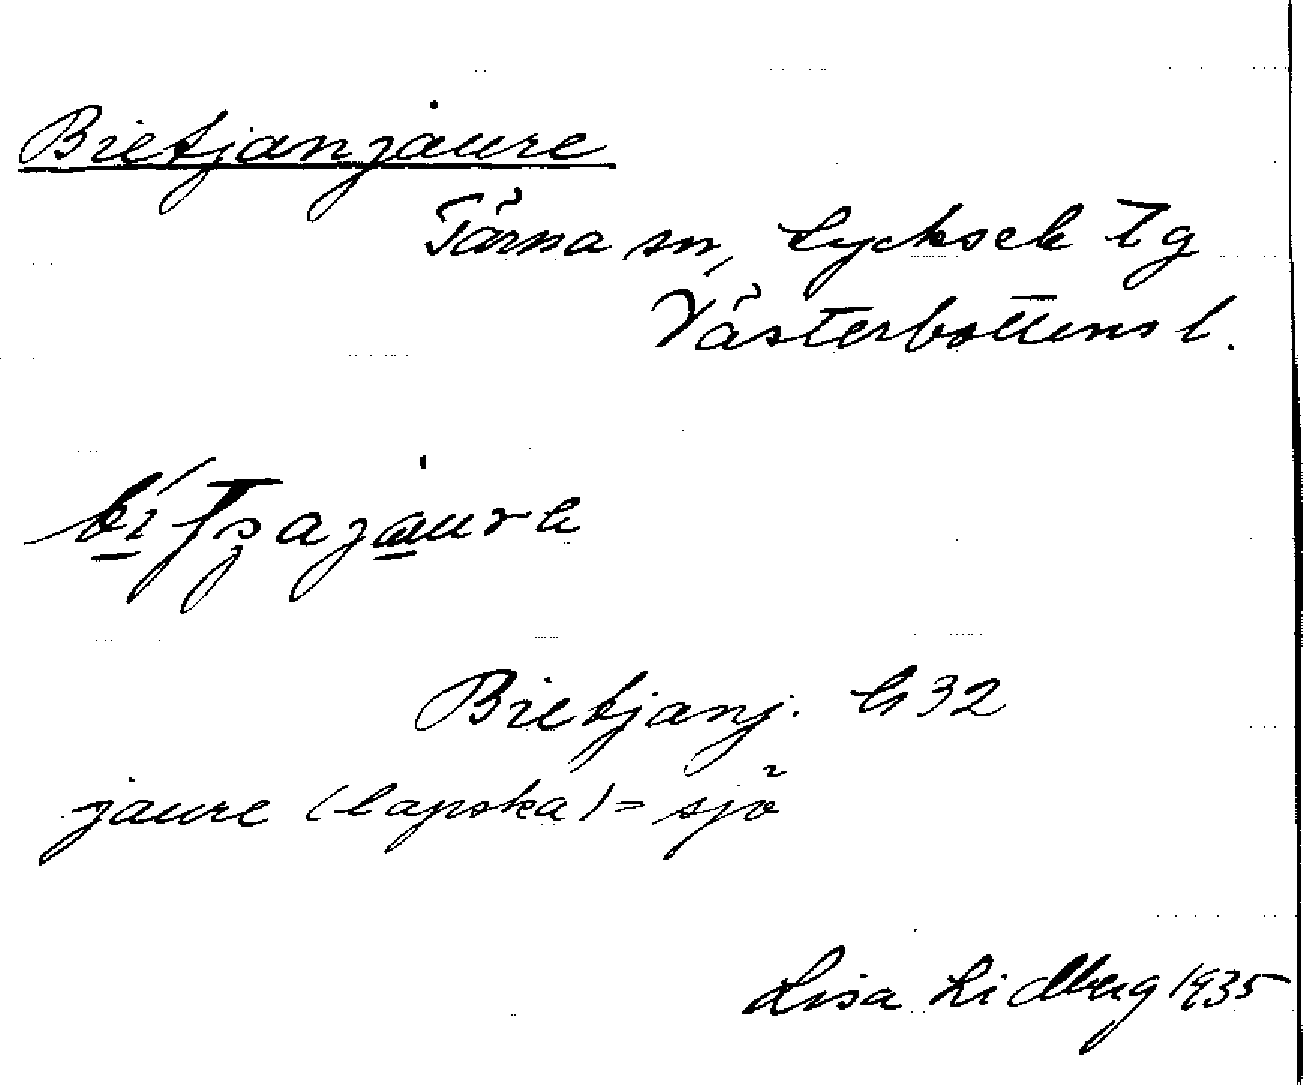 Bietjanjaure
Tärna sn, Lycksele tg
Västerbottens l.
Bietjanj. G 32
jaure (lapska) = sjö
Lisa Lidberg 1935